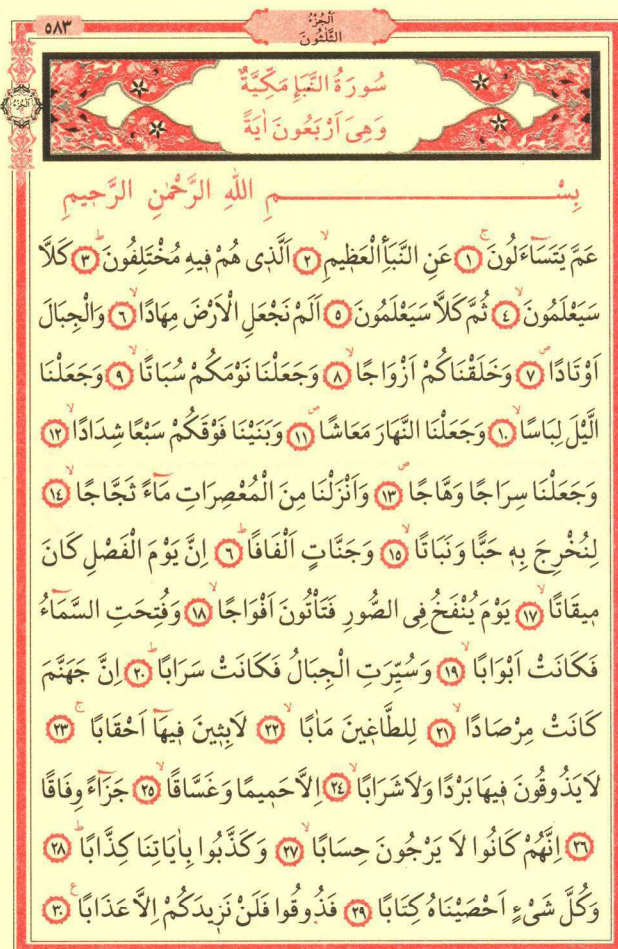 ٥٨٣
اَلْجُزْءُ
الثَّلٰثُونَ
سُورَةُ النَّبَإِ مَكِّيَّةٌ
وَهِىَ اَرْبَعُونَ اٰيَةً
بِسْمِ اللهِ الرَّحْمٰنِ الرَّحٖيمِ
عَمَّ يَتَسَٓاءَلُونَۚ ﴿١﴾ عَنِ النَّبَأِ الْعَظٖيمِۙ ﴿٢﴾ اَلَّذٖى هُمْ فٖيهِ مُخْتَلِفُونَۜ ﴿٣﴾ كَلَّا
سَيَعْلَمُونَۙ ﴿٤﴾ ثُمَّ كَلَّا سَيَعْلَمُونَ ﴿٥﴾ اَلَمْ نَجْعَلِ الْاَرْضَ مِهَادًاۙ ﴿٦﴾ وَالْجِبَالَ
اَوْتَادًاۖ ﴿٧﴾ وَخَلَقْنَاكُمْ اَزْوَاجًاۙ ﴿٨﴾ وَجَعَلْنَا نَوْمَكُمْ سُبَاتًاۙ ﴿٩﴾ وَجَعَلْنَا
الَّيْلَ لِبَاسًاۙ ﴿١٠﴾ وَجَعَلْنَا النَّهَارَ مَعَاشًاۖ ﴿١١﴾ وَبَنَيْنَا فَوْقَكُمْ سَبْعًا شِدَادًاۙ ﴿١٢﴾
وَجَعَلْنَا سِرَاجًا وَهَّاجًاۖ ﴿١٣﴾ وَاَنْزَلْنَا مِنَ الْمُعْصِرَاتِ مَٓاءً ثَجَّاجًاۙ ﴿١٤﴾
لِنُخْرِجَ بِهٖ حَبًّا وَنَبَاتًاۙ ﴿١٥﴾ وَجَنَّاتٍ اَلْفَافًاۜ ﴿٦﴾ اِنَّ يَوْمَ الْفَصْلِ كَانَ
مٖيقَاتًاۙ ﴿١٧﴾ يَوْمَ يُنْفَخُ فِى الصُّورِ فَتَأْتُونَ اَفْوَاجًاۙ ﴿١٨﴾ وَفُتِحَتِ السَّمَٓاءُ
فَكَانَتْ اَبْوَابًاۙ ﴿١٩﴾ وَسُيِّرَتِ الْجِبَالُ فَكَانَتْ سَرَابًاۜ ﴿٢٠﴾ اِنَّ جَهَنَّمَ
كَانَتْ مِرْصَادًاۙ ﴿٢١﴾ لِلطَّاغٖينَ مَاٰبًاۙ ﴿٢٢﴾ لَابِثٖينَ فٖيهَٓا اَحْقَابًاۚ ﴿٢٣﴾
لَا يَذُوقُونَ فٖيهَا بَرْدًا وَلَا شَرَابًاۙ ﴿٢٤﴾ اِلَّا حَمٖيمًا وَغَسَّاقًاۙ ﴿٢٥﴾ جَزَٓاءً وِفَاقًا
﴿٢٦﴾ اِنَّهُمْ كَانُوا لَا يَرْجُونَ حِسَابًاۙ ﴿٢٧﴾ وَكَذَّبُوا بِاٰيَاتِنَا كِذَّابًاۜ ﴿٢٨﴾
وَكُلَّ شَىْءٍ اَحْصَيْنَاهُ كِتَابًا ﴿٢٩﴾ فَذُوقُوا فَلَنْ نَزٖيدَكُمْ اِلَّا عَذَابًا ﴿٣٠﴾